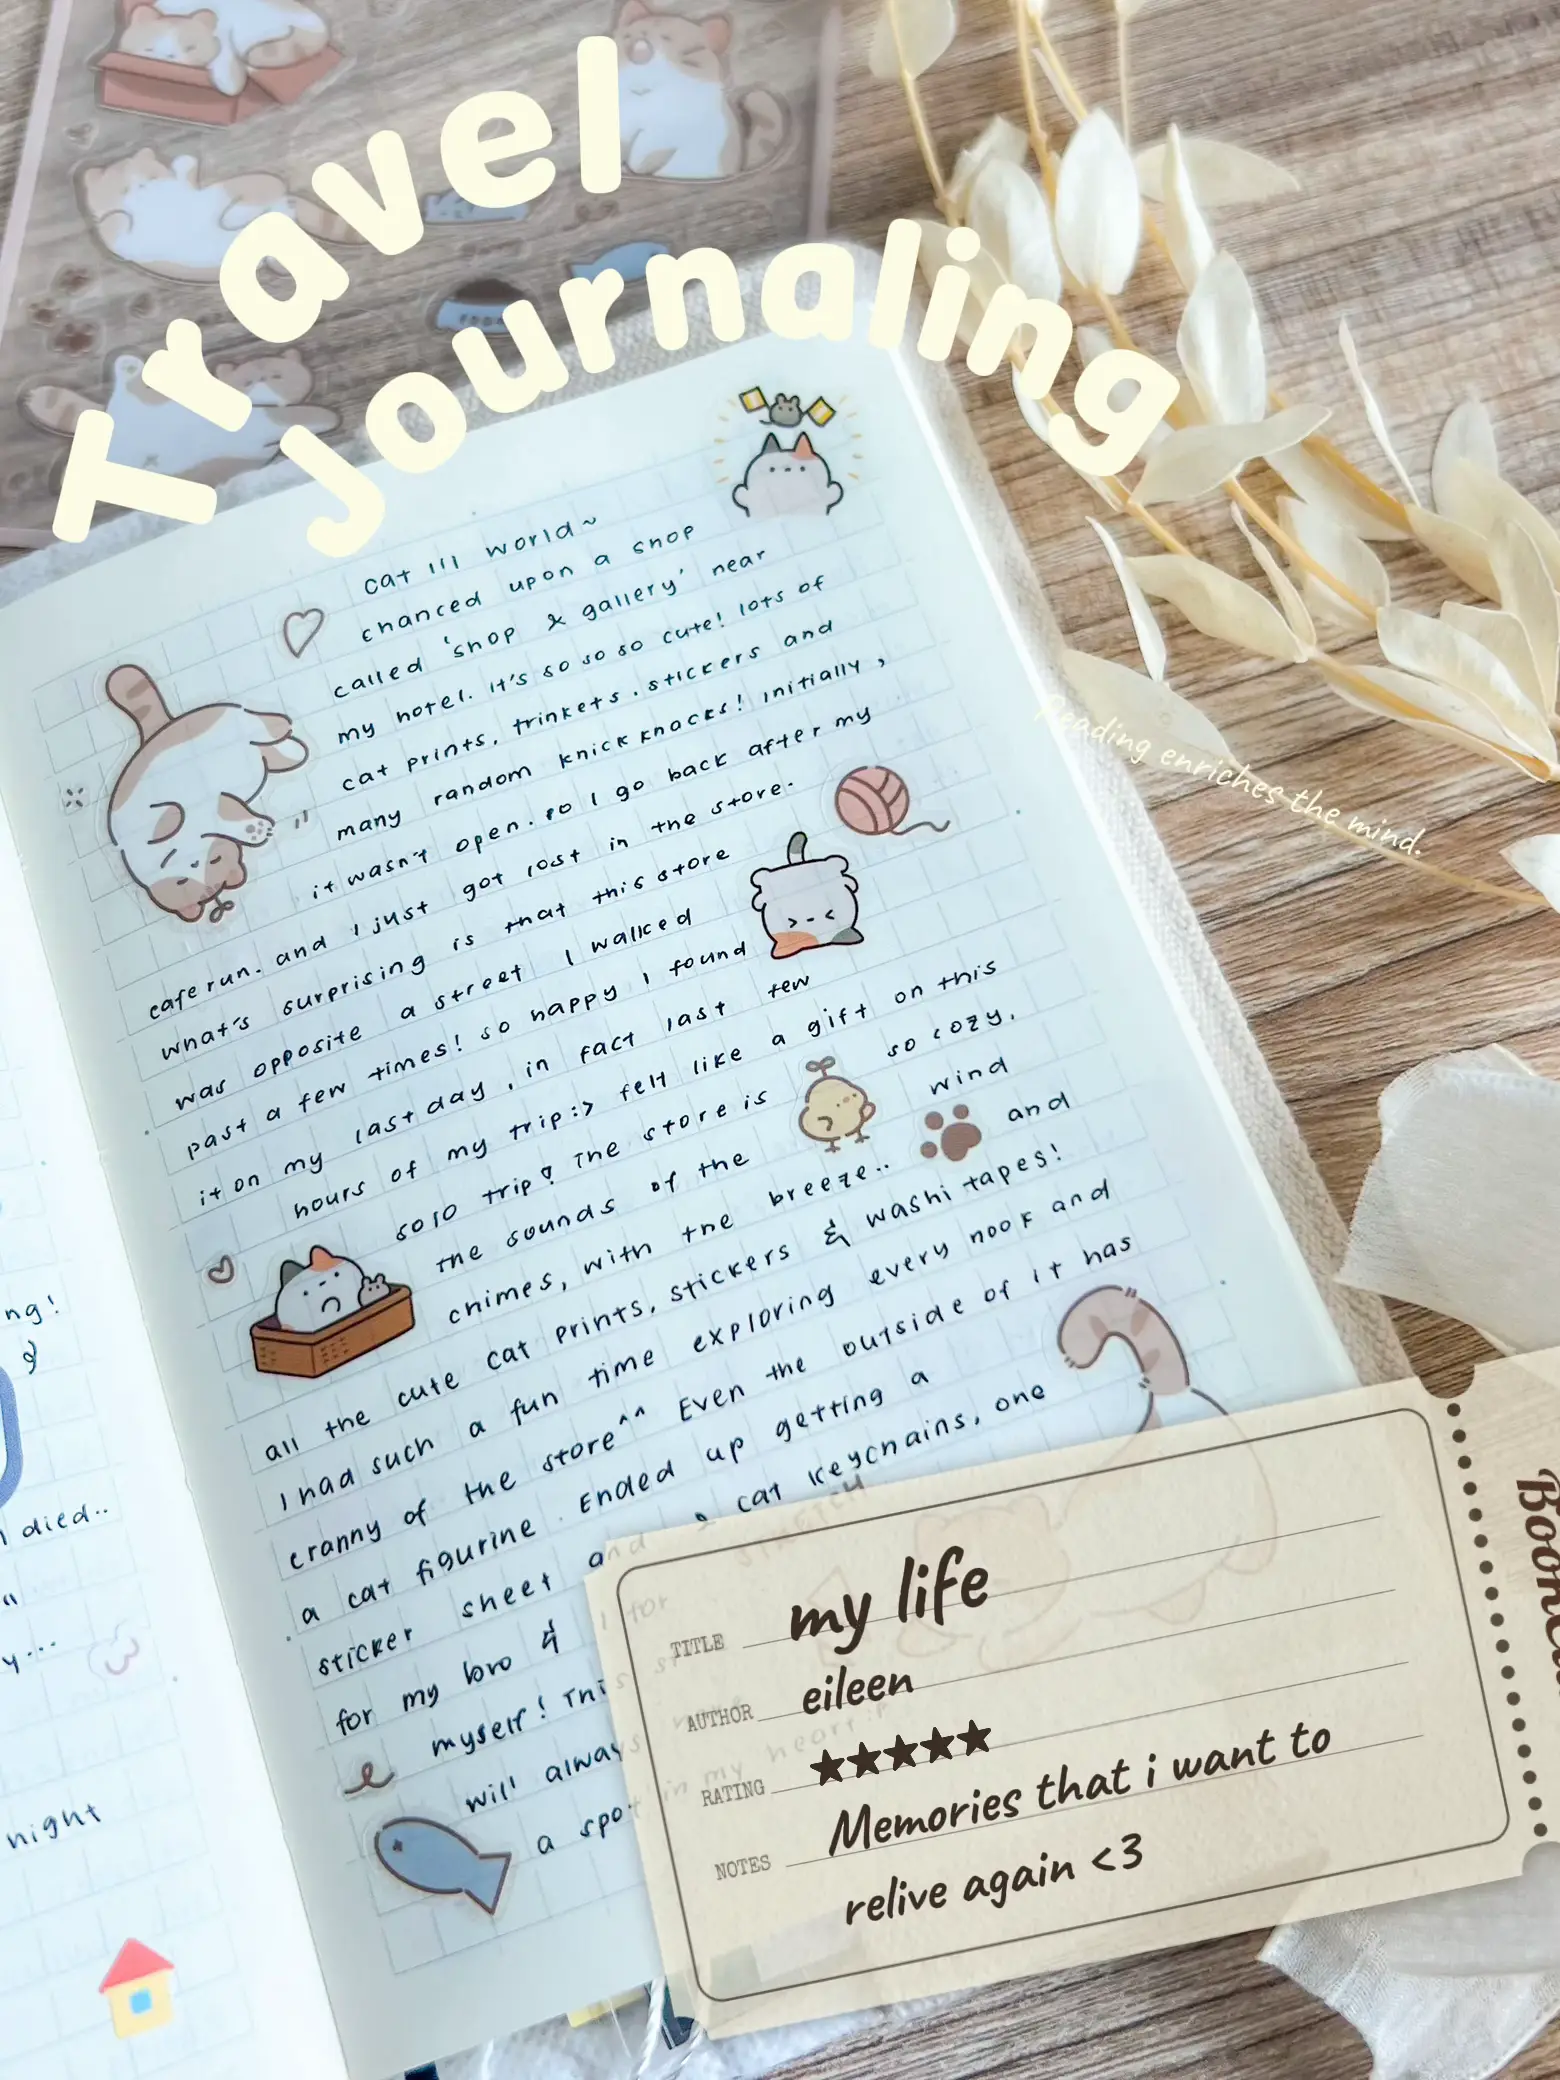 Travel
Journaling
cat lil world~
chanced upon a shop
called 'shop & gallery' near
my hotel. it's so so so cute! lots of
cat prints, trinkets. stickers and
many random knick knacks! initially,
it wasn't open. so I go back after my
cafe run. and I just got lost in the store.
what's surprising is that this store
was opposite a street I walked
past a few times! so happy I found
it on my last day, in fact last few
hours of my trip:> felt like a gift on this
solo trip! The store is so cozy.
the sounds of the wind
chimes, with the breeze.. and
all the cute cat prints, stickers & washi tapes!
I had such a fun time exploring every nook and
cranny of the store^^ Even the outside of it has
a cat figurine. Ended up getting a
sticker sheet and & cat keychains, one
for my bro &
myself! This
will always
a spot in my heart
Reading enriches the mind.
ng!
died..
y...
night
TITLE my life
AUTHOR eileen
RATING ★★★★★
NOTES Memories that i want to
relive again <3